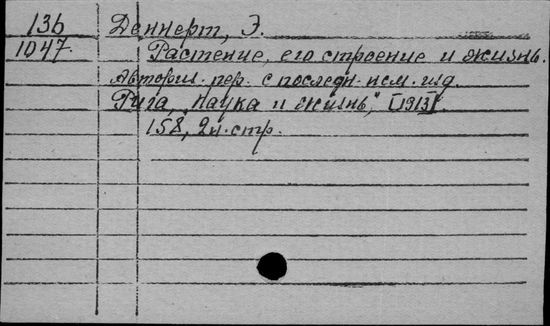 136 Деннерт, Э.
1047. Растение, его строение и жизнь.
Авториз. пер. с последн. нем. изд.
Рига, "Наука и жизнь," [1913].
158, 2 н. стр.